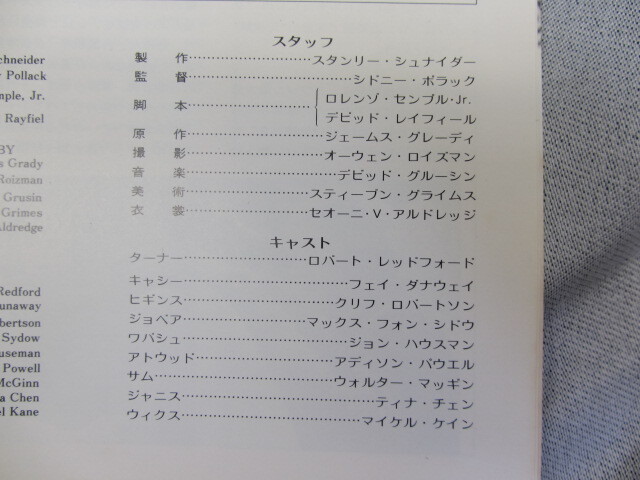 chneider
Pollack
mple, Jr.
Rayfiel
BY
s Grady
Roizman
Grusin
Grimes
Aldredge
Redford
unaway
bertson
Sydow
useman
Powell
McGinn
a Chen
el Kane
スタッフ
製作……………………スタンリー・シュナイダー
監督……………………シドニー・ポラック
脚本……………………{ロレンゾ・センプル・Jr.
デビッド・レイフィール
原作……………………ジェームス・グレーディ
撮影……………………オーウェン・ロイズマン
音楽……………………デビッド・グルーシン
美術……………………スティーブン・グライムス
衣裳……………………セオーニ・V・アルドレッジ
キャスト
ターナー……………………ロバート・レッドフォード
キャシー……………………フェイ・ダナウェイ
ヒギンス……………………クリフ・ロバートソン
ジョベア……………………マックス・フォン・シドウ
ワバシュ……………………ジョン・ハウスマン
アトウッド……………………アディソン・パウエル
サム……………………ウォルター・マッギン
ジャニス……………………ティナ・チェン
ウィクス……………………マイケル・ケイン